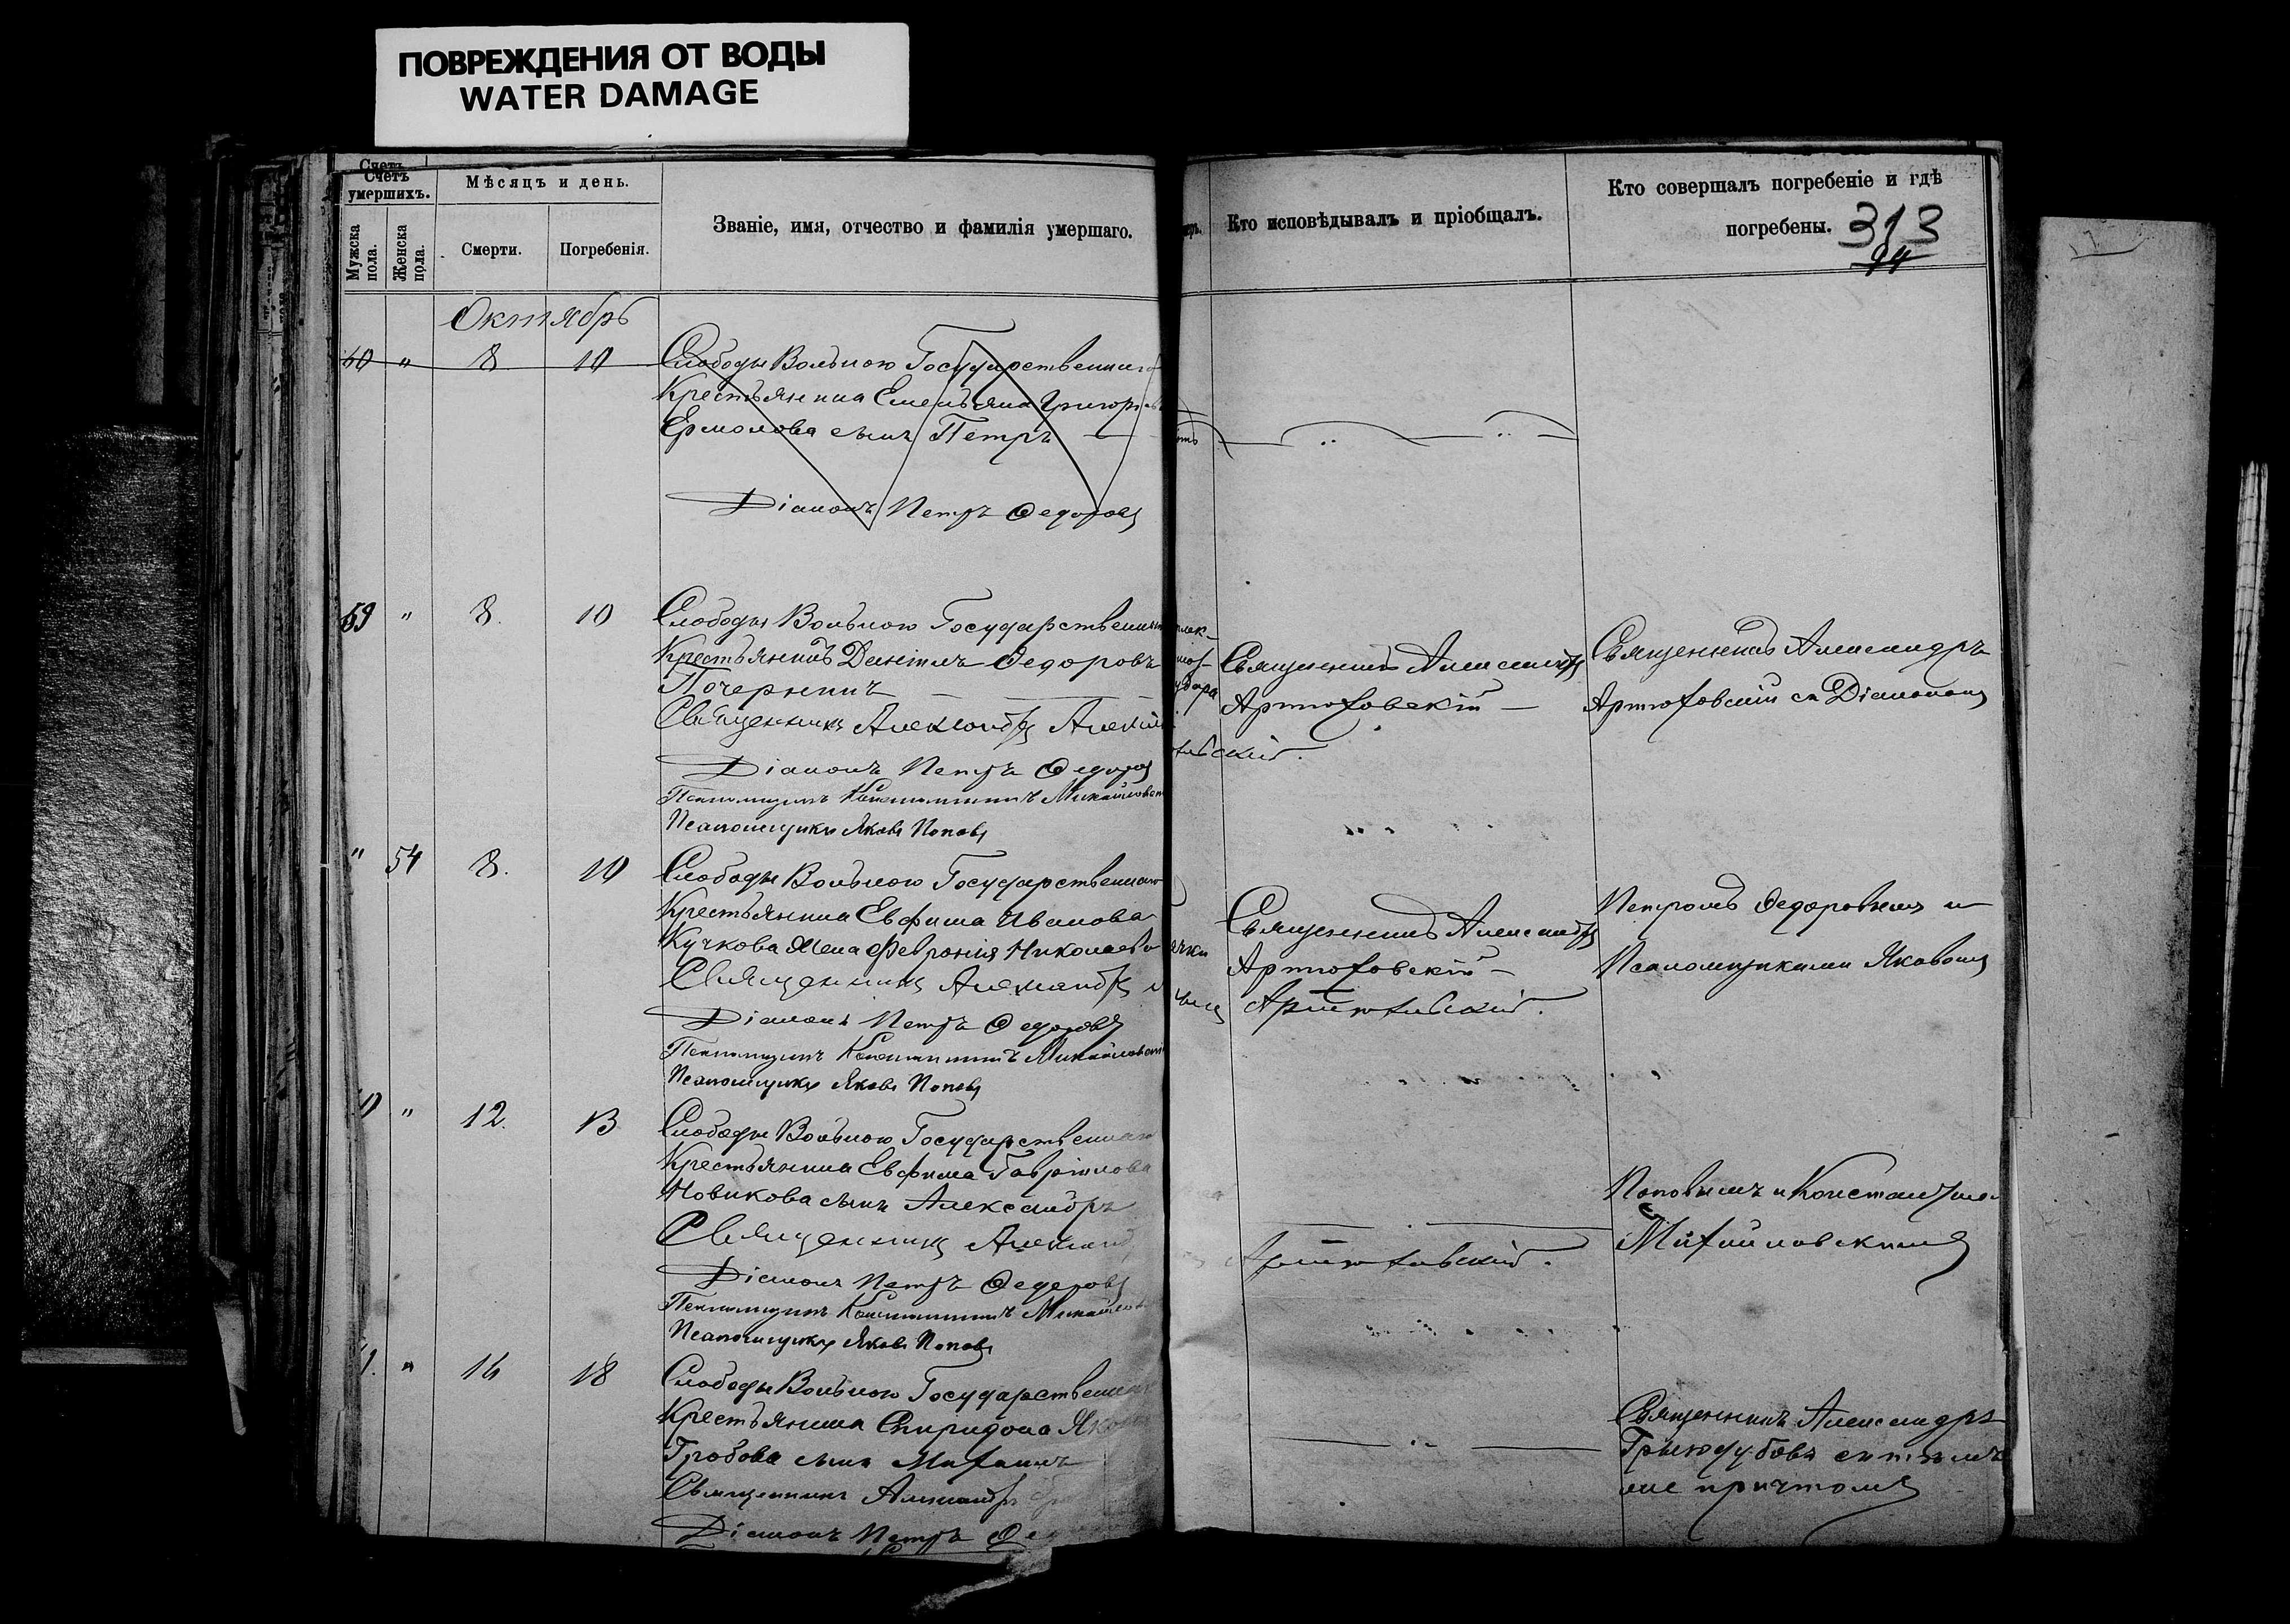 ПОВРЕЖДЕНИЯ ОТ ВОДЫ
WATER DAMAGE
Счетъ
Счетъ умершихъ.
Мѣсяцъ и день.
Мужска пола.
Женска пола.
Смерти.
Погребенія.
Званіе, имя, отчество и фамилія умершаго.
Кто исповѣдывалъ и пріобщалъ.
Кто совершалъ погребеніе и гдѣ
погребены.
313
94
Октябрь
40 " 8 10 Слободы Вольною Государственнаго
Крестьянина Емельяна Григорьев
Ермолова сынъ Петръ
Діаконъ Петръ Ѳедоровъ
59 " 8. 10 Слободы Вольною Государственный
Крестьянинъ Даніилъ Ѳедоровъ
Почернинъ
Священникъ Александръ
Діаконъ Петръ Ѳедоров
Псаломщикъ Константинъ Михайловск
Псаломщикъ Яковъ Поповъ
Священникъ Александръ
Артюховскій
Священникъ Александръ
Артюховскій съ Діакономъ
" 54 8. 10 Слободы Вольною Государственнаго
Крестьянина Евфима Иванова
Кучкова жена Февронія Николаева
Священникъ Александръ
Діаконъ Петръ Ѳедоровъ
Псаломщикъ Константинъ Михайловскі
Псаломщикъ Яковъ Поповъ
Священникъ Александръ
Артюховскій
Артюховскій.
Петромъ Ѳедоровымъ и
Псаломщиками Яковомъ
" 12. 13 Слободы Вольною Государственнаго
Крестьянина Евфима Гавріилова
Новикова сынъ Александръ
Священникъ Александ
Діаконъ Петръ Ѳедоровъ
Псаломщикъ Константинъ Михайлов
Псаломщикъ Яковъ Поповъ
Артюховскій.
Поповымъ и Константино
Михайловскимъ
1. " 16 18 Слободы Вольною Государственнаг
Крестьянина Спиридона Яков
Гробова сынъ Михаилъ
Священникъ Александръ
Діаконъ Петръ Ѳе
Священникъ Александръ
съ тѣмъ
же причтомъ